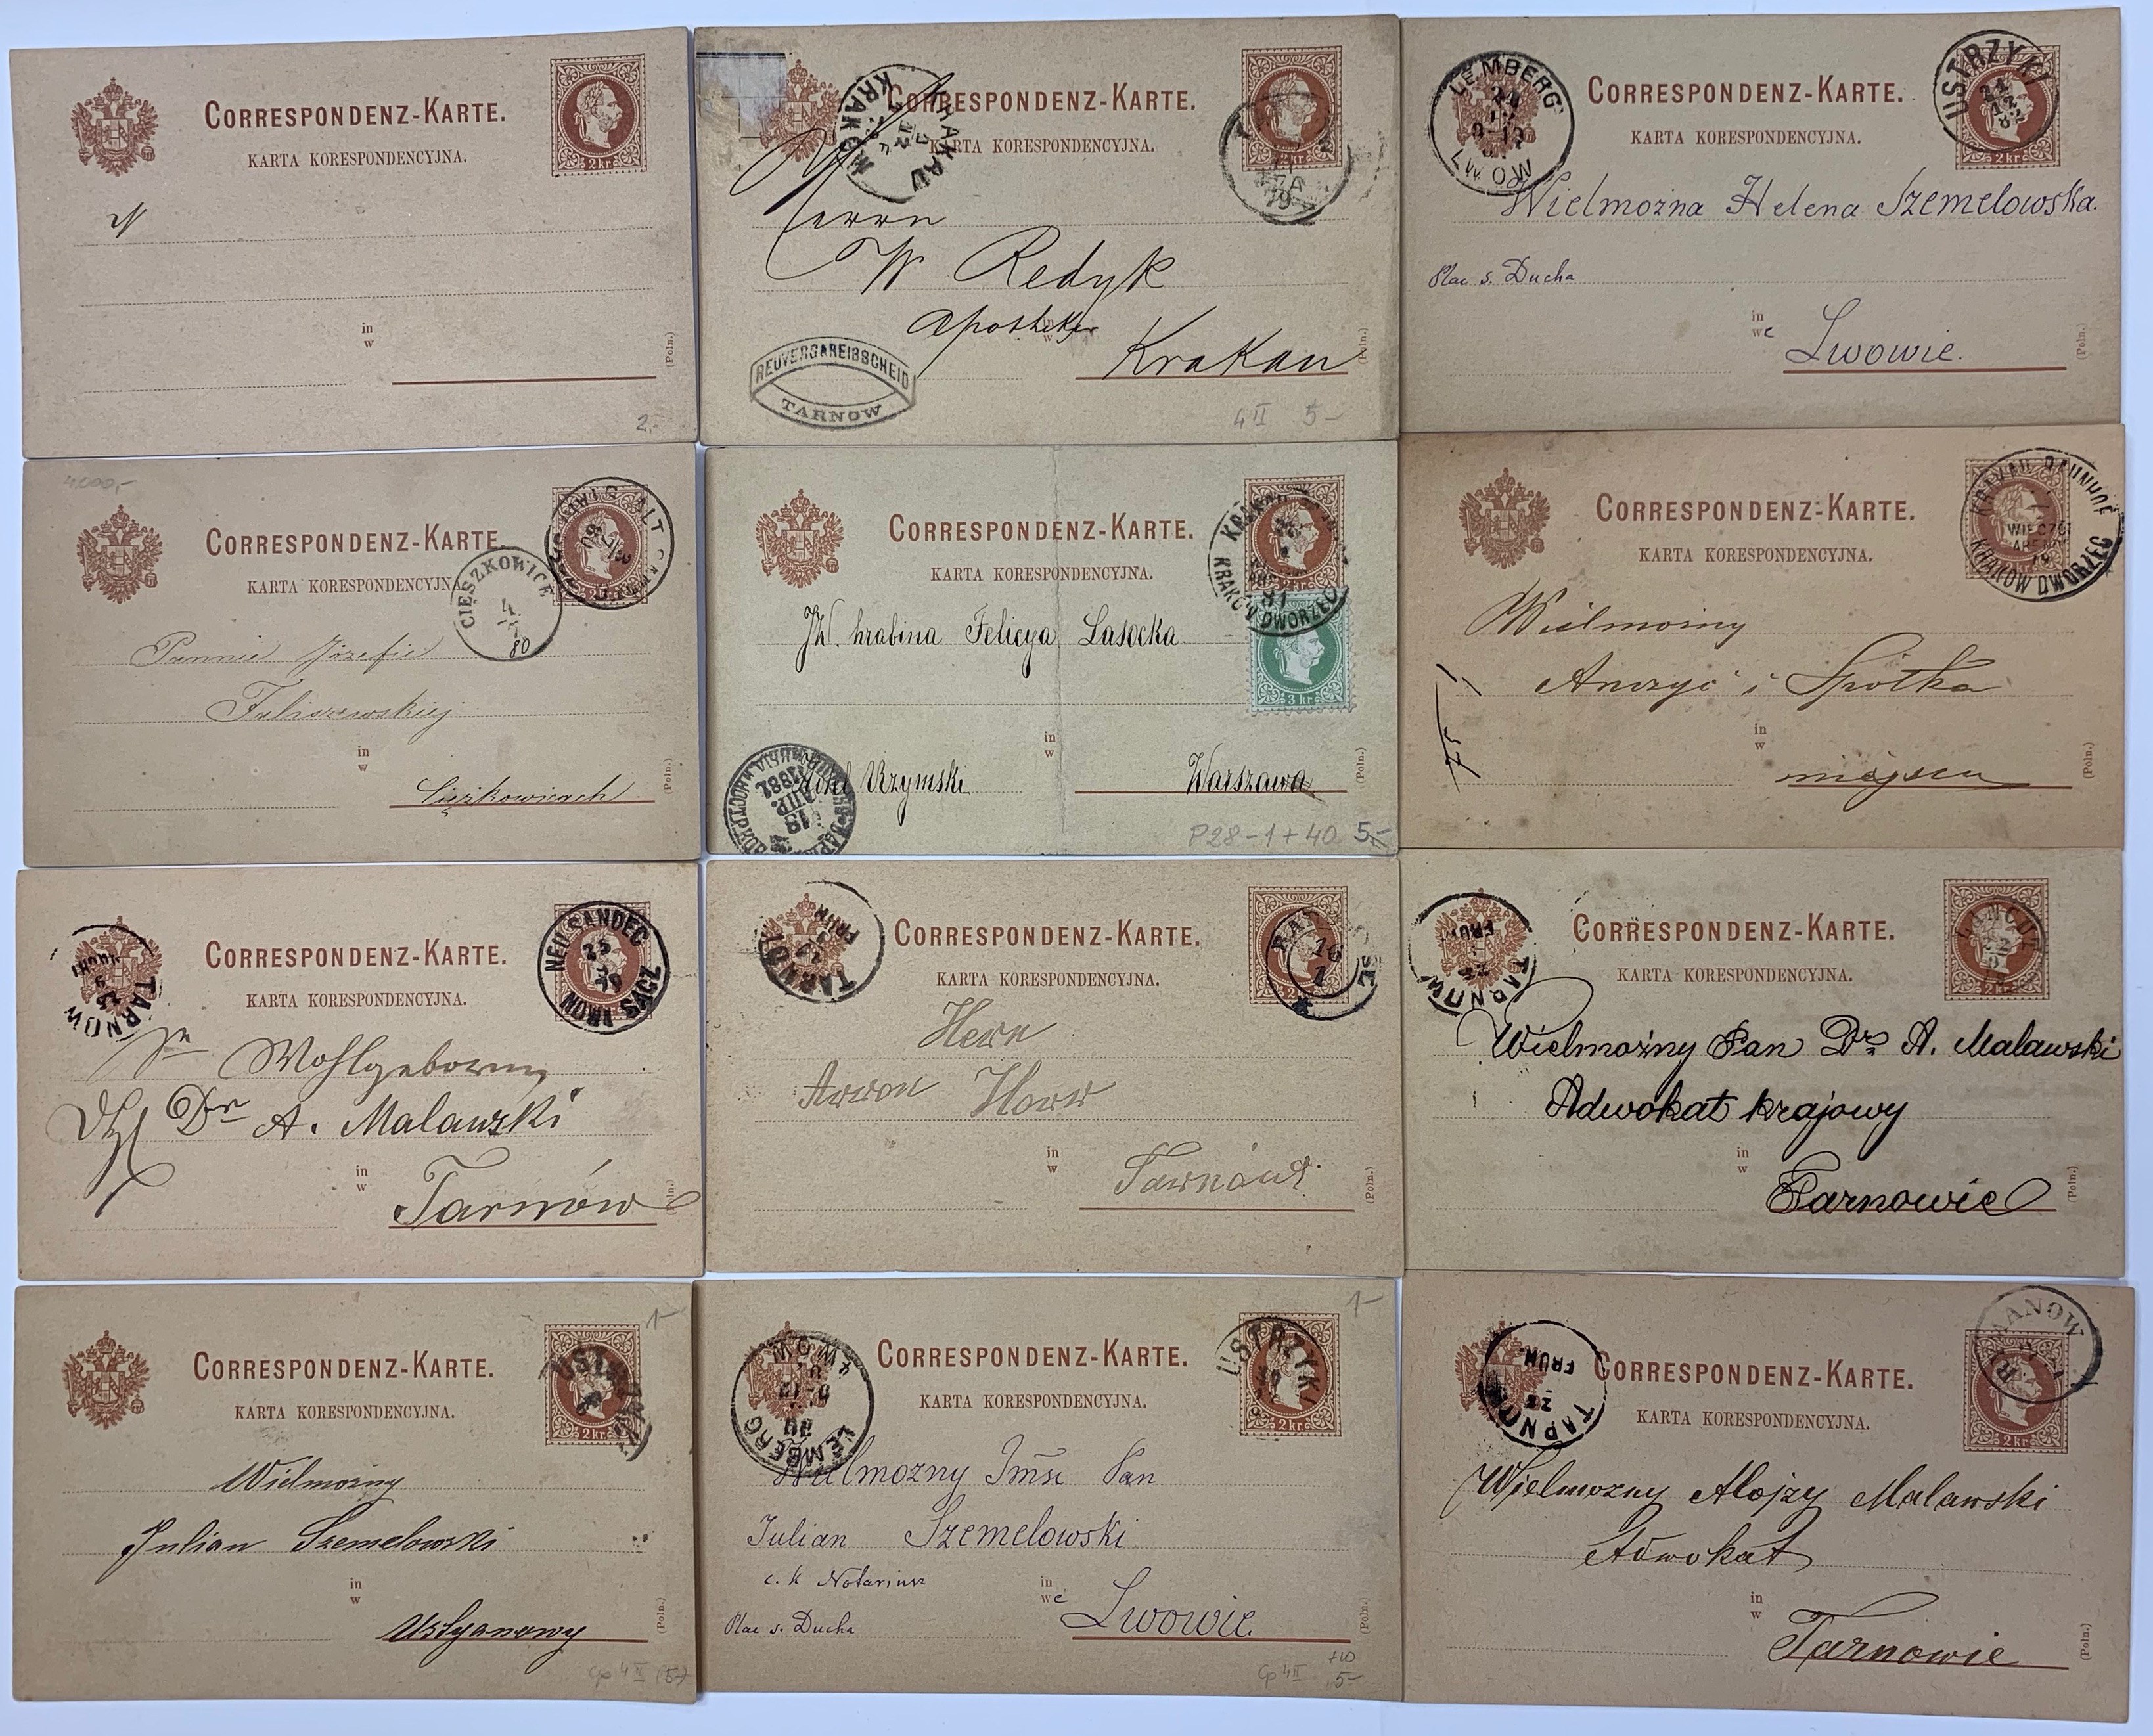 CORRESPONDENZ-KARTE.
KARTA KORESPONDENCYJNA.
2 kr.
in
w
(Poln.)
2,-
CORRESPONDENZ-KARTE.
KRAKAU
KRAKÓW
79
2 kr.
Herrn
W Redyk
Apotheker
w
Krakau
(Poln.)
REUVERSAREIBSCHEID
TARNOW
4 II 5-
CORRESPONDENZ-KARTE.
KARTA KORESPONDENCYJNA.
LEMBERG
LWOW
USTRZYKI
24
12
82
2 kr.
Wielmożna Helena Szemelowska.
Plac s. Ducha
in
we
Lwowie.
(Poln.)
4.000,-
CORRESPONDENZ-KARTE.
KARTA KORESPONDENCYJNA
ALT
CIĘSZKOWICE
4
7
80
Pannie Józefie
Tuliszewskiej
in
w
Ciężkowicach
(Poln.)
CORRESPONDENZ-KARTE.
KARTA KORESPONDENCYJNA.
KRAKAU
KRAKÓW DWORZEC
3 kr.
JW. hrabina Felicya Lasocka
in
w
Hotel Rzymski
Warszawa
(Poln.)
P28-1+40 5,-
CORRESPONDENZ-KARTE.
KARTA KORESPONDENCYJNA.
BAHNHOF
KRAKÓW DWORZEC
Wielmożny
Anczyc i Spółka
in
w
miejscu
(Poln.)
CORRESPONDENZ-KARTE.
KARTA KORESPONDENCYJNA.
TARNOW
NEU SANDEC
NOWY SACZ
Wohlgeborne
Dr A. Malawski
in
w
Tarnów
(Poln.)
CORRESPONDENZ-KARTE.
KARTA KORESPONDENCYJNA.
TARNOW
FRÜH
16
1
Herrn
Horr
in
w
(Poln.)
CORRESPONDENZ-KARTE.
KARTA KORESPONDENCYJNA.
TARNOW
FRÜH
ŁANCUT
Wielmożny Pan Dr A. Malawski
Adwokat krajowy
in
w
Tarnowie
(Poln.)
1-
CORRESPONDENZ-KARTE.
KARTA KORESPONDENCYJNA.
2 kr.
Wielmożny
Julian Szemelowski
in
w
Ustyanowy
(Poln.)
Cp 4 II (5-)
1-
CORRESPONDENZ-KARTE.
KARTA KORESPONDENCYJNA.
LEMBERG
LWOW
USTRZYKI
2 kr.
Wielmożny Jmść Pan
Julian Szemelowski
c. k Notariusz
Plac s. Ducha
in
we
Lwowie.
(Poln.)
Cp 4 II +10 5-
CORRESPONDENZ-KARTE.
KARTA KORESPONDENCYJNA.
TARNOW
FRÜH.
23
2 kr.
Wielmożny Alojzy Malawski
Adwokat
in
w
Tarnowie
(Poln.)